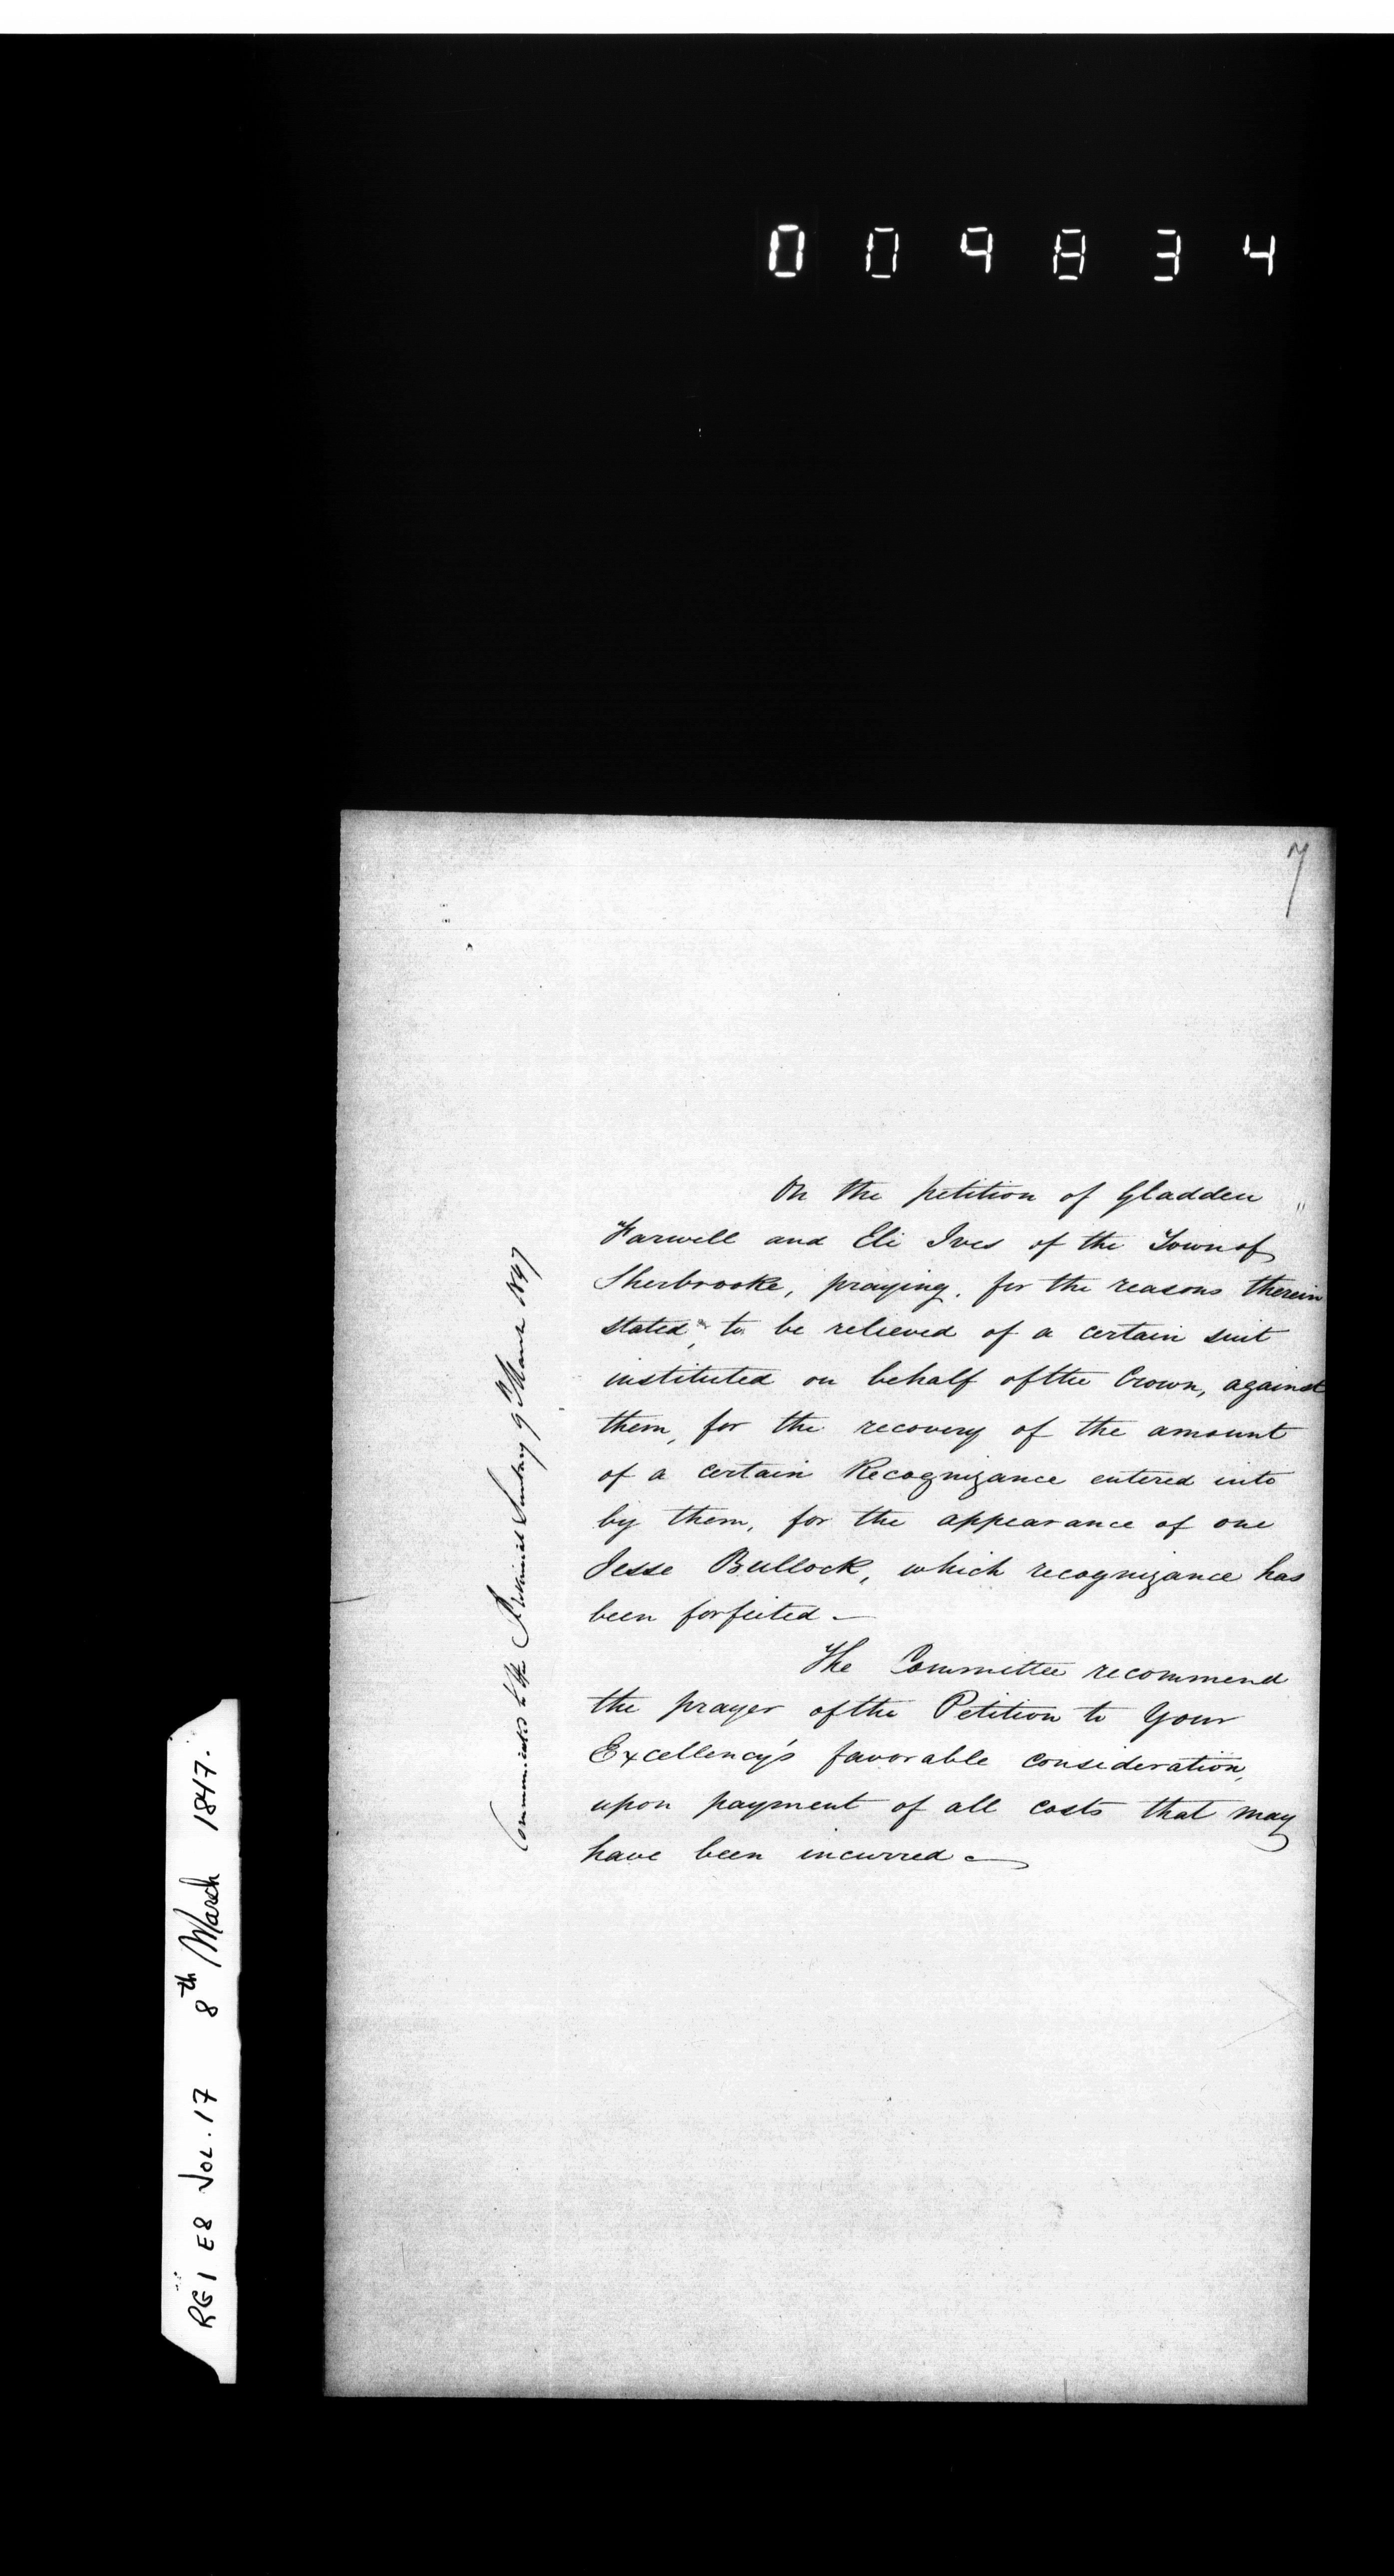 009834
7
On the petition of Gladden
Farwell and Eli Ives of the Town of
Sherbrooke, praying, for the reasons therein
stated, to be relieved of a certain suit
instituted on behalf of the Crown, against
them, for the recovery of the amount
of a certain Recognizance entered into
by them, for the appearance of one
Jesse Bullock, which recognizance has
been forfeited —
The Committee recommend
the prayer of the Petition to Your
Excellency's favorable consideration,
upon payment of all costs that may
have been incurred —
to the 9th March 1847
RG1 E8 Vol. 17 8th March 1847.